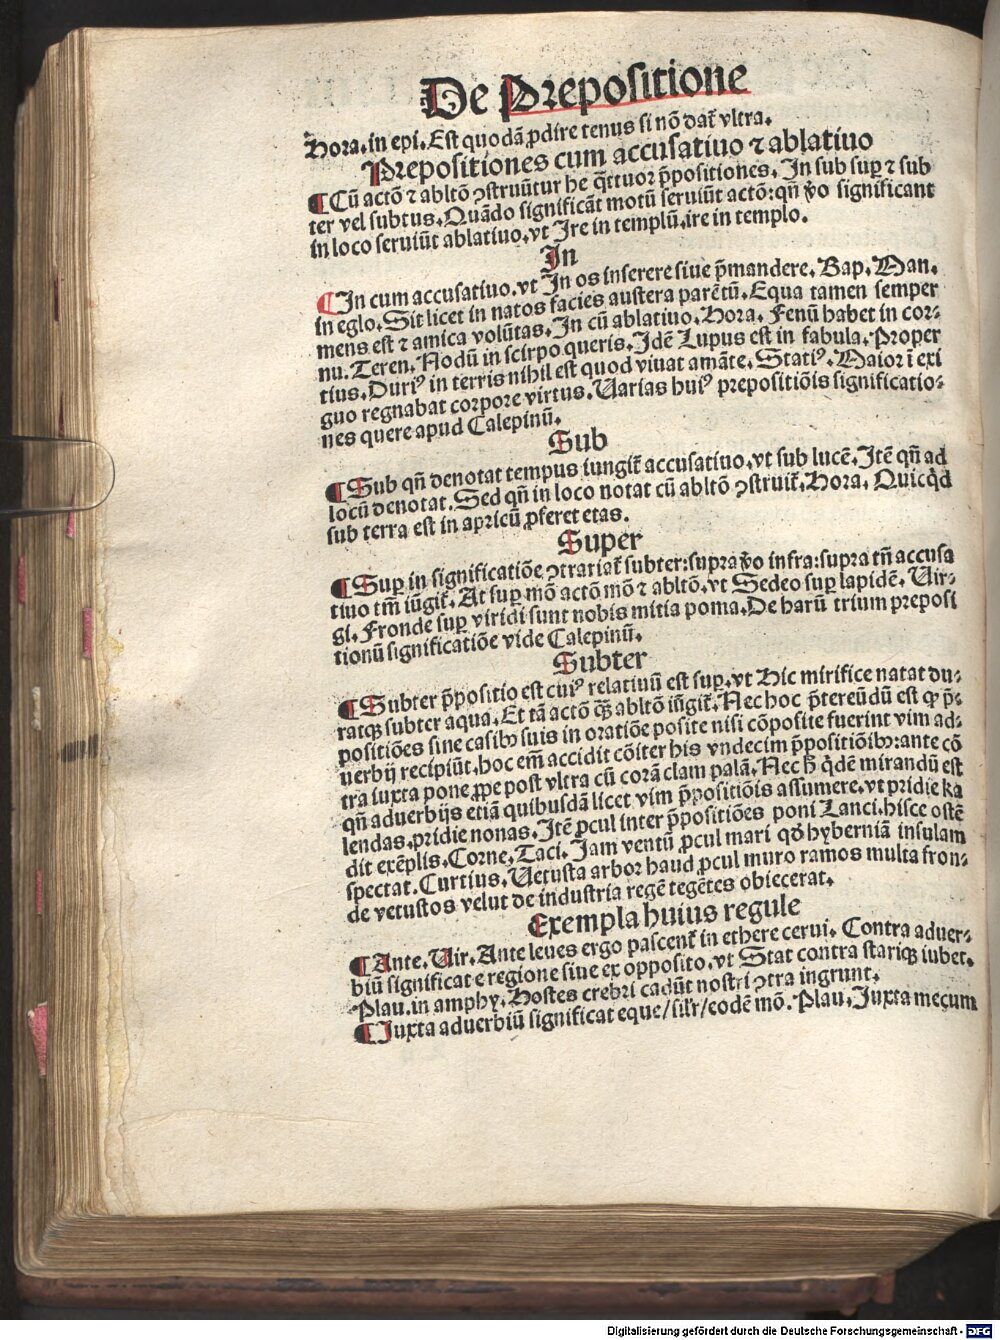 De Prepositione
Hora. in epi. Est quodā ꝓdire tenus si nō dat̄ vltra.
Prepositiones cum accusatiuo ⁊ ablatiuo
¶ Cū actō ⁊ abltō ꝯstruūtur he q̄ttuor p̄positiones. In sub suꝑ ⁊ sub
ter vel subtus. Quādo significāt motū seruiūt actō: qn̄ v̄o significant
in loco seruiūt ablatiuo. vt Ire in templū. ire in templo.
In
¶ In cum accusatiuo. vt In os inserere siue p̄mandere. Bap. Man.
in eglo. Sit licet in natos facies austera parētū. Equa tamen semper
mens est ⁊ amica volūtas. In cū ablatiuo. Hora. Fenū habet in cor-
nu. Teren. Nodū in scirpo queris. Idē Lupus est in fabula. Proper
tius. Duriꝰ in terris nihil est quod viuat amāte. Statiꝰ. Maior ī exi
guo regnabat corpore virtus. Uarias huiꝰ prepositiōis significatio-
nes quere apud Calepinū.
Sub
¶ Sub qn̄ denotat tempus iungit̄ accusatiuo. vt sub lucē. Itē qn̄ ad
locū denotat. Sed qn̄ in loco notat cū abltō ꝯstruit̄. Hora. Quicq̇d
sub terra est in apricū ꝓferet etas.
Super
¶ Suꝑ in significatiōe ꝯtrariat̄ subter: supra v̄o infra: supra tn̄ accusa
tiuo tm̄ iūgit̄. At suꝑ mō actō mō ⁊ abltō. vt Sedeo suꝑ lapidē. Uir-
gi. Fronde suꝑ viridi sunt nobis mitia poma. De harū trium preposi
tionū significatiōe vide Calepinū.
Subter
¶ Subter p̄positio est cuiꝰ relatiuū est suꝑ. vt Hic mirifice natat du-
ratqꝫ subter aqua. Et tā actō qꝫ abltō iūgit̄. Nec hoc p̄tereūdū est ꝙ p̄-
positiōes sine casibꝫ suis in oratiōe posite nisi cōposite fuerint vim ad-
uerbij recipiūt. hoc em̄ accidit cōiter his vndecim p̄positiōibꝫ: ante cō
tra iuxta pone ꝓpe post vltra cū corā clam palā. Nec h̄ q̇dē mirandū est
qn̄ aduerbijs etiā quibusdā licet vim p̄positiōis assumere. vt pridie ka
lendas. pridie nonas. Itē ꝓcul inter p̄positiōes poni Lanci. hisce ostē
dit exēplis. Corne. Taci. Iam ventū ꝓcul mari qd̄ hyberniā insulam
spectat. Curtius. Uetusta arbor haud ꝓcul muro ramos multa fron-
de vetustos velut de industria regē tegētes obiecerat.
Exempla huius regule
¶ Ante. Uir. Ante leues ergo pascent̄ in ethere cerui. Contra aduer-
biū significat e regione siue ex opposito. vt Stat contra stariqꝫ iubet.
Plau. in amphy. Hostes crebri cadūt nostri ꝯtra ingrunt.
¶ Iuxta aduerbiū significat eque/sil'r/eodē mō. Plau. Iuxta mecum
Digitalisierung gefördert durch die Deutsche Forschungsgemeinschaft - DFG